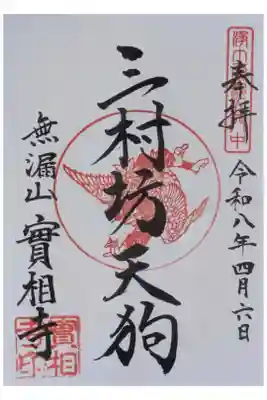 奉拝
令和八年四月六日
三村坊天狗
無漏山實相寺